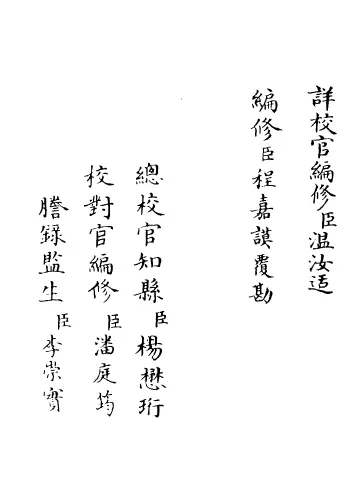 詳校官編修臣温汝适
編修臣程嘉謨覆勘
總校官知縣臣楊懋珩
校對官編修臣潘庭筠
謄録監生臣李崇實